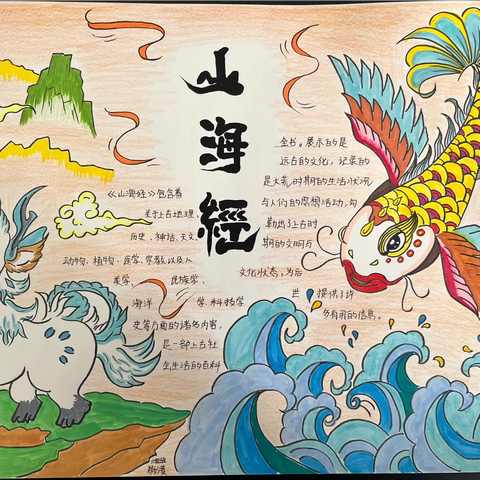 山海經
《山海经》包含着
关于上古地理、
历史、神话、天文、
动物、植物、医学、宗教以及人
类学、民族学、
海洋学、科技学
史等方面的诸多内容，
是一部上古社
会生活的百科
全书。展示的是
远古的文化，记录的
是大荒时期的生活状况
与人们的思想活动，勾
勒出了上古时
期的文明与
文化状态，为后
世提供了许
多有用的信息。